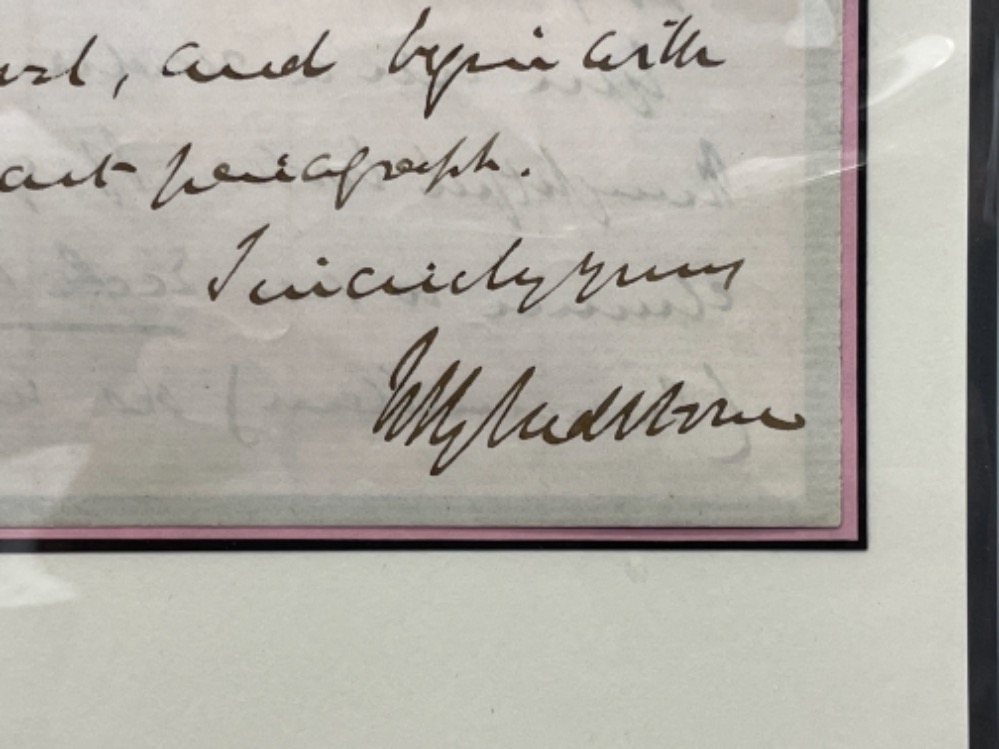 , and begin with
paragraph.
Sincerely yours
WEGladstone